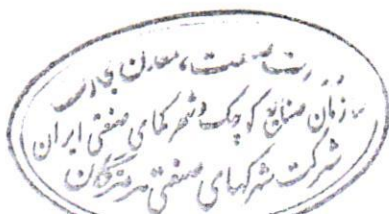 رت صنعت، معدن تجارت
سازمان صنایع کوچک و شهرکهای صنعتی ایران
شرکت شهرکهای صنعتی هرمزگان